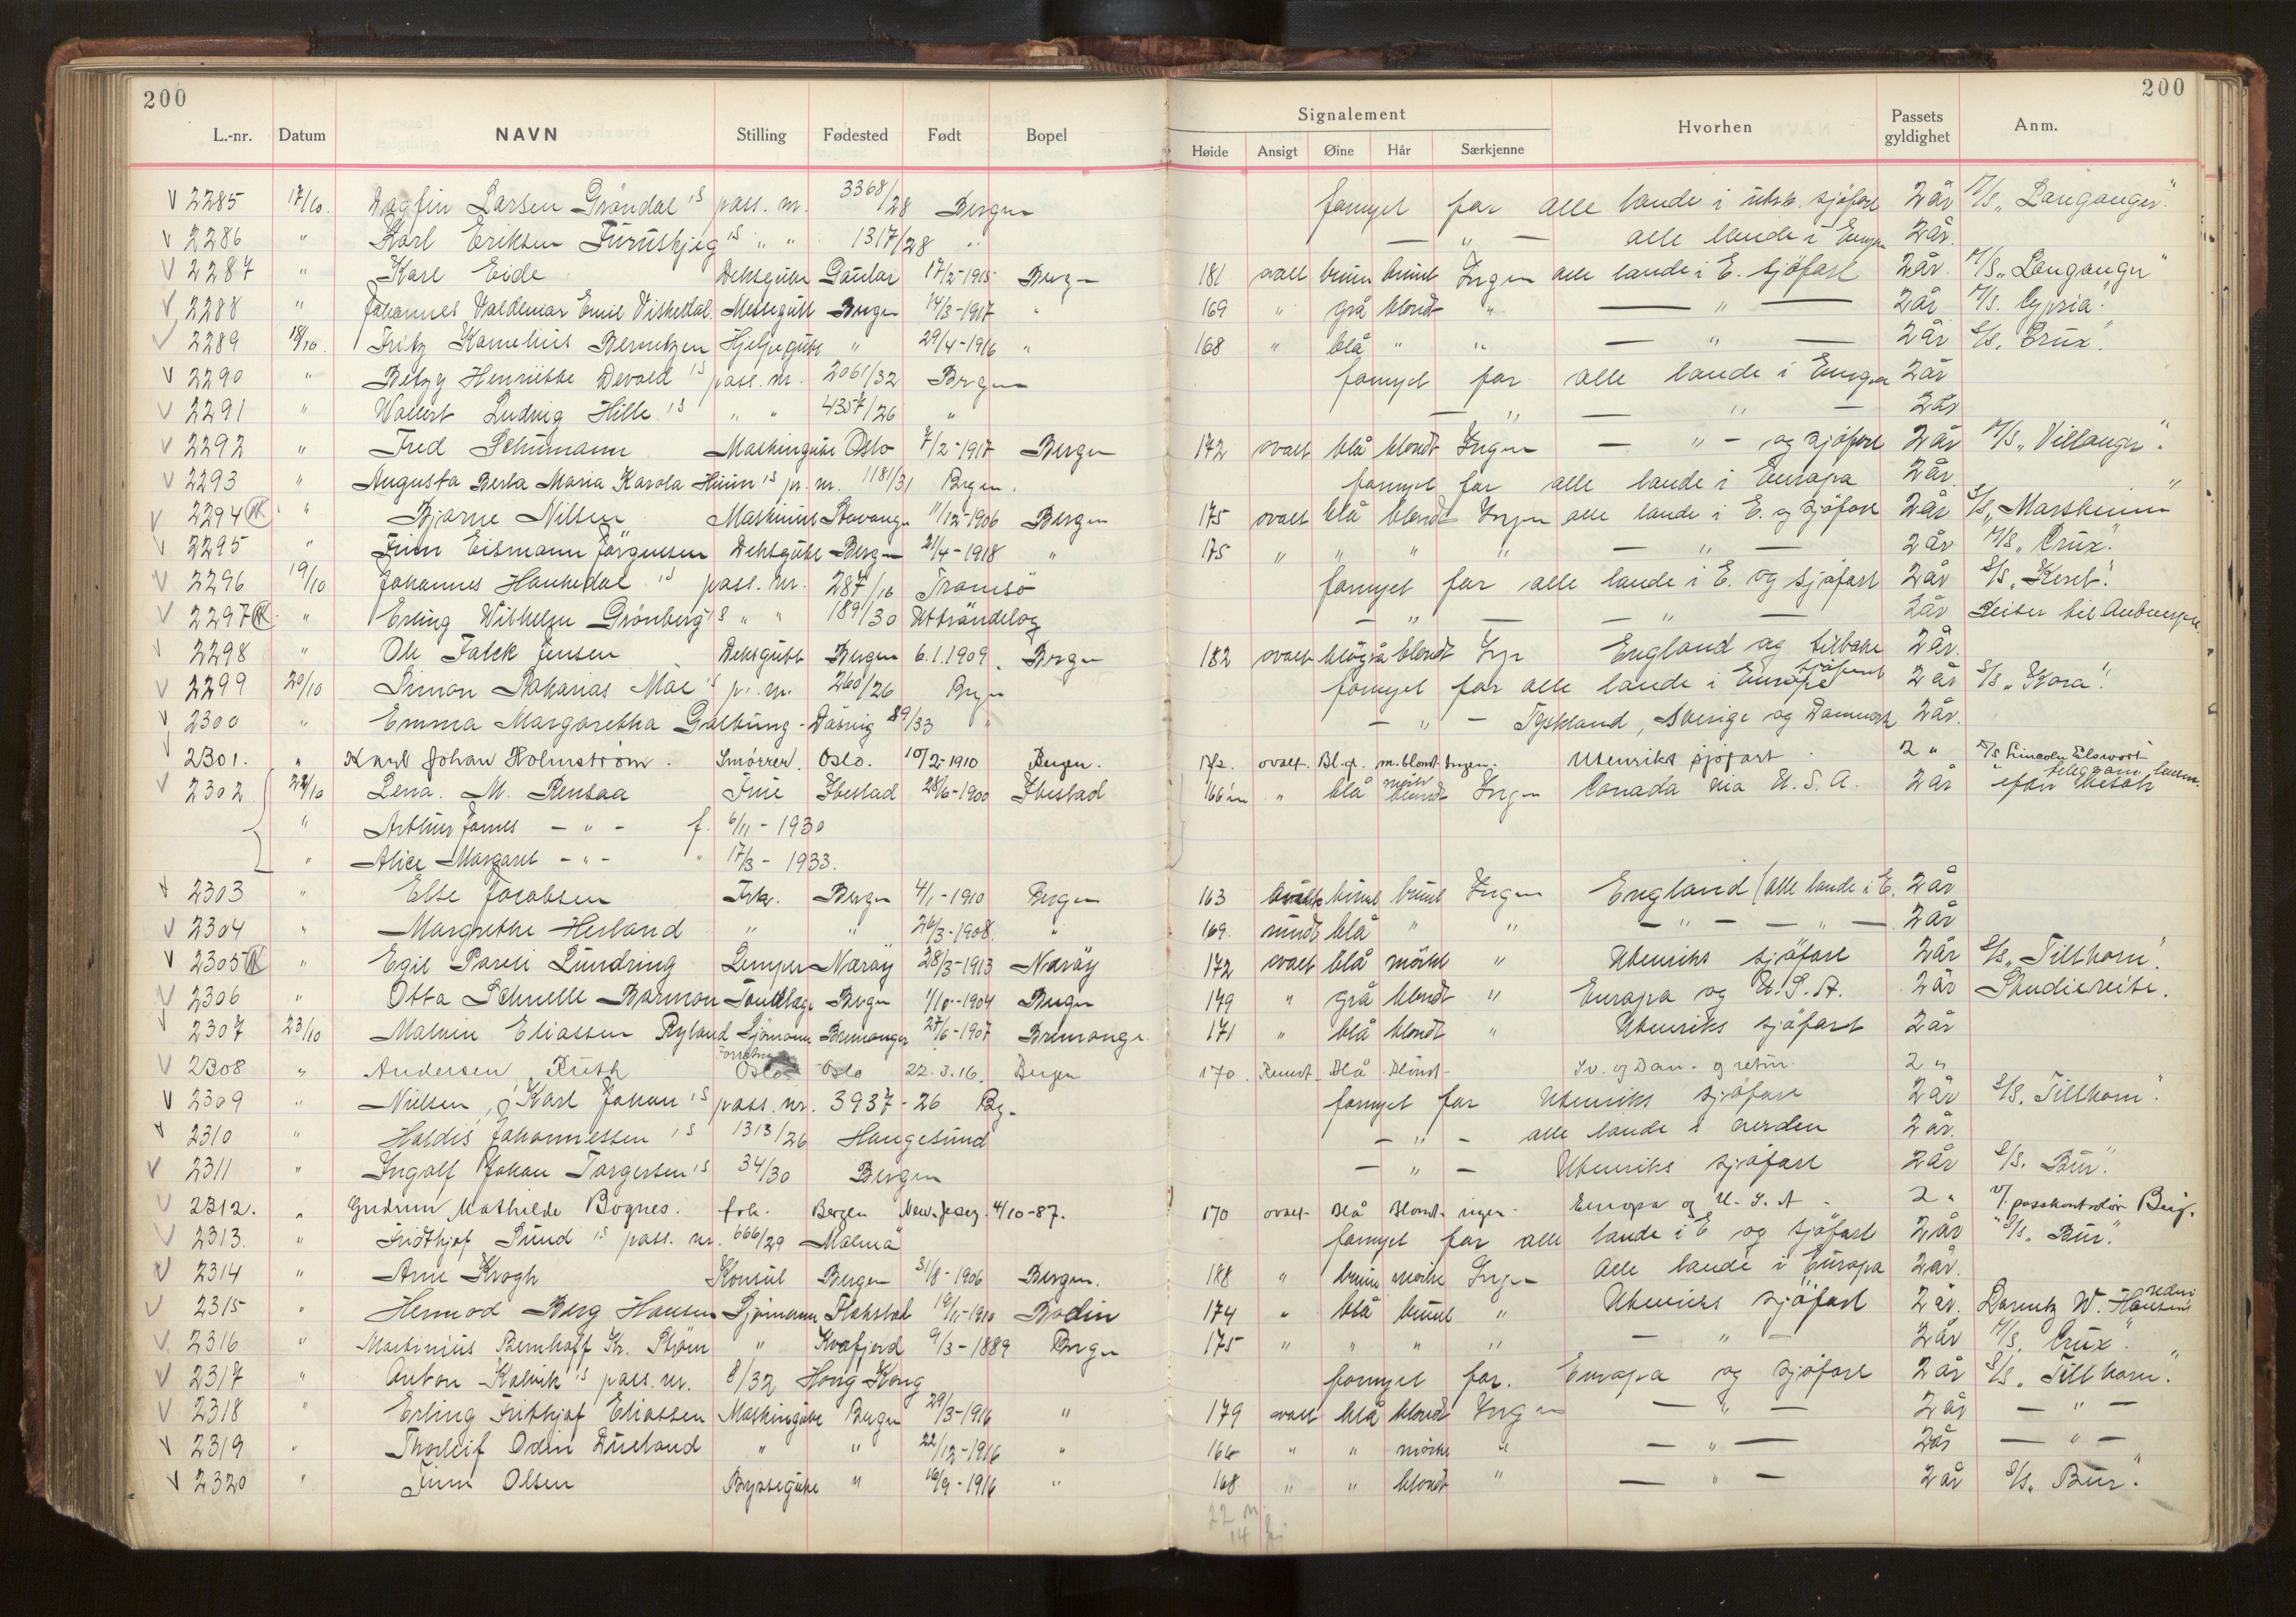 200
200
L.-nr. Datum NAVN Stilling Fødested Født Bopel
Signalement Hvorhen Passets gyldighet Anm.
Høide Ansigt Øine Hår Særkjenne
V 2285 17/10. Dagfin Larsen Grøndal's pass. nr. 3368/28 Bergen fornyet for alle lande i utsk. sjöfart 2 år M/S „Langanger".
V 2286 " Karl Eriksen Furuskjeg's " " 1317/28 " — " — alle lande i Europa 2 år.
V 2287 " Karl Eide Dekksgutt Gaular 17/2-1915 Bergen 181 ovalt brun brunt Ingen alle lande i E. sjöfart 2 år. M/S „Langanger"
V 2288 " Johannes Valdemar Emil Viskedal Messegutt Bergen 14/3-1917 " 169 " grå blondt " — " — 2 år M/S. Cypria".
V 2289 18/10. Fritz Kornelius Berntzen " 29/4-1916 " 168 " blå " " — " — 2 år S/S. Crux".
V 2290 " Betzy Henriette Devold's pass. nr. 2061/32 Bergen fornyet for alle lande i Europa 2 år
V 2291 " Ludvig Hille's " " 4357/26 " — " — " — 2 år
V 2292 " Fred Schumann Maskingutt Oslo 7/2-1917 Bergen 172 ovalt blå blondt Ingen — " — og sjöfart 2 år M/S „Villanger".
V 2293 " Augusta Berta Maria Karola Huun's p. nr. 1181/31 Bergen. fornyet for alle lande i Europa 2 år
V 2294 " Bjarne Nilsen Maskinist Stavanger 11/12-1906 Bergen 175 ovalt blå blondt Ingen alle lande i E. og sjöfart 2 år
V 2295 " Finn Eismann Jörgensen Dekksgutt Bergen 21/4-1918 " 175 " " " " — " — 2 år M/S „Crux".
V 2296 19/10 Johannes Haukedal's pass. nr. 287/16 Tromsö fornyet for alle lande i E. og sjöfart 2 år S/S „Keret".
V 2297 " Erling Wilhelm Grønberg's " " 189/30 Uttröndelag — " — — " — 2 år Reiser til Antwerpen.
V 2298 " Ole Falck Jensen Dekksgutt Bergen 6.1.1909. Bergen 182 ovalt blågrå blondt Ing England og tilbake 2 år.
V 2299 20/10 Simon Sakarias Moe's p. nr. 260/26 Bergen fornyet for alle lande i Europa sjöfart 2 år S/S „Kora".
V 2300 " Emma Margaretha Galtung - Døsvig 89/33 " — " — Tyskland, Sverige og Danmark 2 år.
V 2301. " Karl Johan Holmström. Smörrer. Oslo. 10/2-1910 Bergen. 172. ovalt. Bl.gr. m.blondt Ingen. Utenriks sjöfart. 2 " M/S Lincoln Elswort
V 2302 22/10 Lena. M. Rensaa Frue Ibestad 28/6-1900 Ibestad 166 " blå mört blondt Ingen Canada via U.S.A. 2 år efter telegram
" Arthur James — " — f. 6/11 - 1930
" Alice Margaret — " — " 17/3 - 1933.
V 2303 " Else Jacobsen Frk. Bergen 4/1-1910 Bergen 163 ovalt brunt brunt Ingen England (alle lande i E. 2 år
V 2304 " Margrethe Herland " " 26/3-1908. " 169. rundt blå " " — " — — " — 2 år
V 2305 " Egil Pareli Lundring Lemper Næröy 28/3-1913 Næröy 172 ovalt blå mörkt " Utenriks sjöfart 2 år S/S „Tillhorn".
V 2306 " Otto Schnelle Barmon Tandlæge Bergen 1/10-1904 Bergen 179 " grå blondt " Europa og U.S.A. 2 år Studiereise.
V 2307 23/10 Malvin Eliassen Ryland Sjömann Bremanger 27/6-1907 Bremanger. 171 " blå blondt " Utenriks sjöfart 2 år
V 2308 " Andersen Ruth Oslo Oslo 22.3.16. Bergen 170. Rundt Blå Blondt Sv. og Dan. og retur. 2 "
V 2309 " Nielsen, Karl Johan's pass. nr. 3937-26 Bg. fornyet for Utenriks sjöfart 2 år S/S. Tillhorn".
V 2310 " Haldis Johannessen's 1313/26 Haugesund — " — alle lande i verden 2 år.
V 2311 " Ingolf Johan Torgersen's 34/30 Bergen — " — Utenriks sjöfart 2 år S/S. Bur".
V 2312. " Gudrun Mathilde Bognes. frk. Bergen New-Jersey. 4/10-87. 170 ovalt Blå Blondt. ingen. Europa og U.S.A. 2 " v/ passkontrolör Berg.
V 2313. " Fridthjof Sund's pass. nr. 666/29 Malmø fornyet for alle lande i E og sjöfart 2 år S/S. Bur".
V 2314 " Arne Krogh Konsul Bergen 31/8-1906 Bergen. 188 " brun mörkt Ingen Alle lande i Europa 2 år.
V 2315 " Hermod Berg Hansen Sjömann Flakstad 19/11-1910 Bodin 174 " blå brunt " Utenriks sjöfart 2 år. W. Hansens rederi
V 2316 " Martinius Bernhoff Kr. Strøm " Kvæfjord 9/3-1889 Bergen 175 " " " " — " — 2 år M/S. Crux".
V 2317 " Anton Kalvik's pass. nr. 8/32 Hong Kong fornyet for. Europa og sjöfart 2 år S/S. Tillhorn".
V 2318 " Erling Frithjof Eliassen Maskingutt Bergen 29/3-1916 " 179 ovalt blå blondt Ingen — " — 2 år — " —
V 2319 " Thorleif Odin Dueland " " 22/12-1916 " 166 " " mörkt " — " — 2 år — " —
V 2320 " Finn Olsen Byssegutt " 16/9-1916 " 168 " " blondt " — " — 2 år S/S. Bur".
22 m.
14